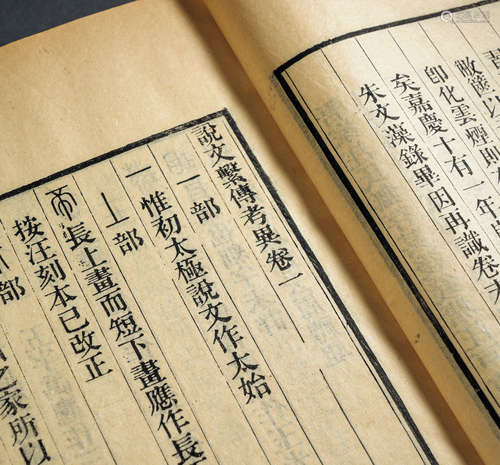 敝篋以
郎化雲煙則
矣嘉慶十有一年
朱文藻錄畢因再識卷
說文繫傳考異卷一
一部
一 惟初太極說文作太始
丄部
長上畫而短下畫應作長
按汪刻本已改正
部
之家所以